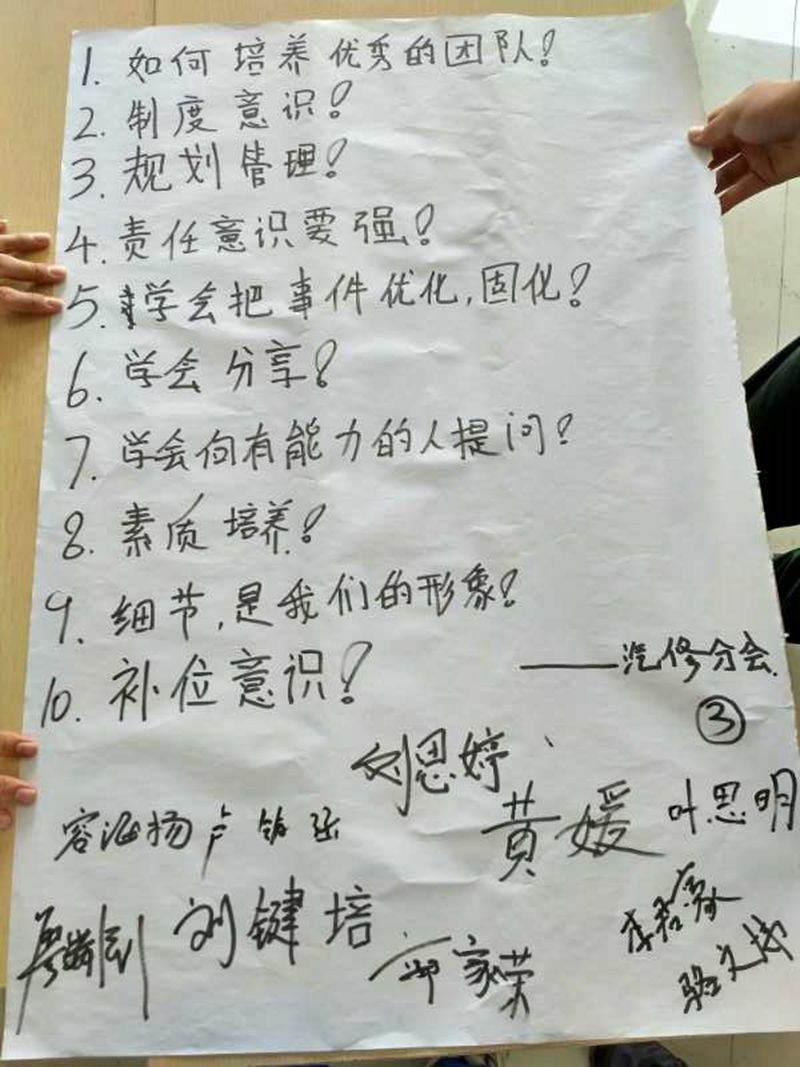 1. 如何培养优秀的团队!
2. 制度意识!
3. 规划管理!
4. 责任意识要强!
5. 学会把事件优化,固化!
6. 学会分享!
7. 学会向有能力的人提问!
8. 素质培养!
9. 细节,是我们的形象!
10. 补位意识!
——汽修分会.
③
刘思婷、
黄媛 叶思明
容 杨 卢
刘键培
家荣
李君豪
骆文